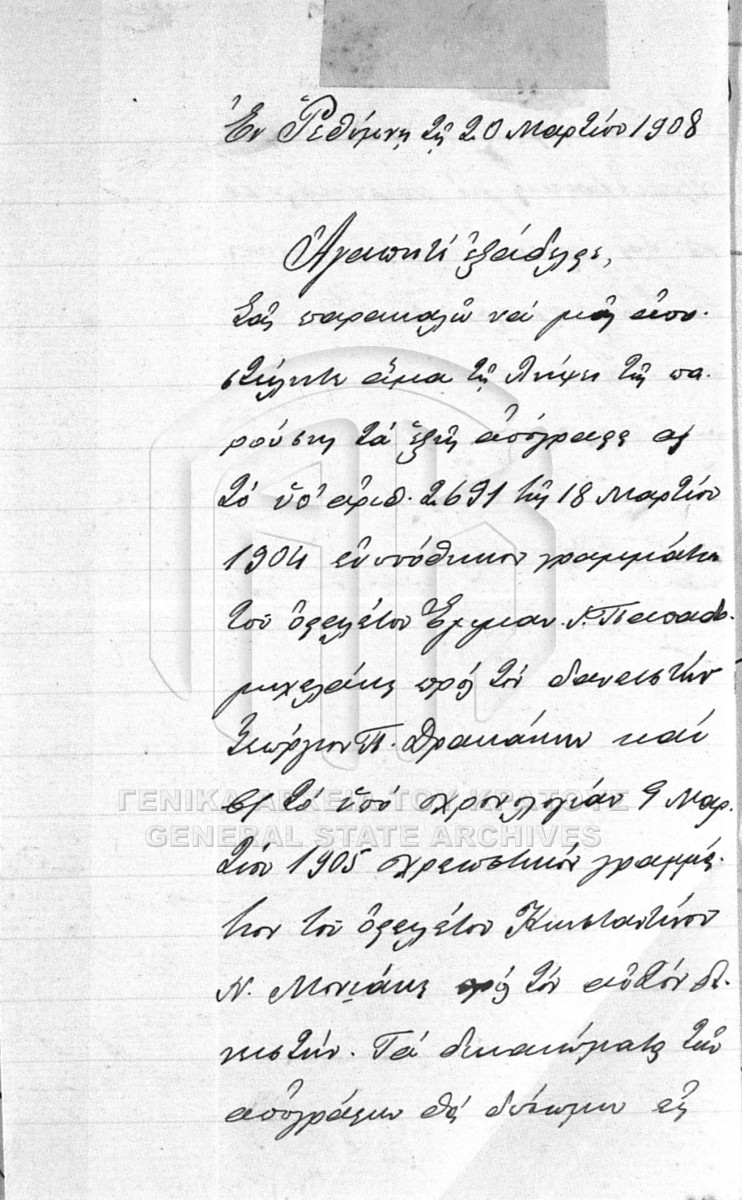 Ἐν Ῥεθύμνῃ τῇ 20 Μαρτίου 1908
Ἀγαπητέ ἐξάδελφε,
Σᾶς παρακαλῶ νά μᾶς ἀπο-
στείλητε ἅμα τῇ λήψει τῆς πα-
ρούσης τά ἑξῆς ἀπόγραφα α)
τό ὑπ' ἀριθ. 2691 τῆς 18 Μαρτίου
1904 ἐνυπόθηκον γραμμάτιον
τοῦ ὀφειλέτου Ἐμμαν. Ν. Παπαδο-
μιχελάκη πρός τόν δανειστήν
Γεώργιον Π. Δρακάκην καί
β) τό ὑπό χρονολογίαν 9 Μαρ-
τίου 1905 χρεωστικόν γραμμά-
τιον τοῦ ὀφειλέτου Κωσταντίνου
Ν. πρός τόν αὐτόν δα-
νειστήν. Τά δικαιώματα τῶν
ἀπογράφων θά δώσωμεν εἰς
ΓΕΝΙΚΑ ΑΡΧΕΙΑ ΤΟΥ ΚΡΑΤΟΥΣ
GENERAL STATE ARCHIVES